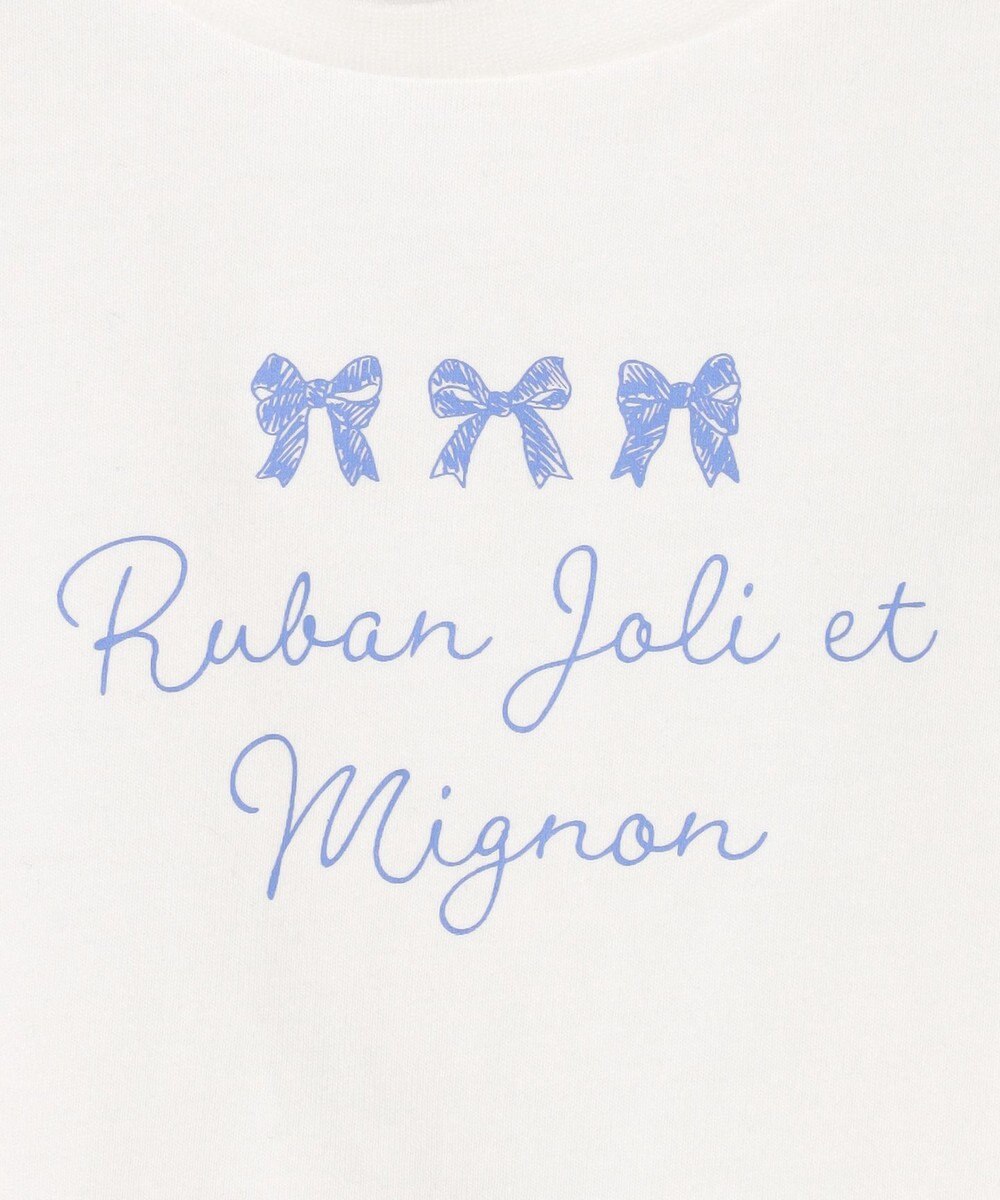 Ruban Joli et
Mignon